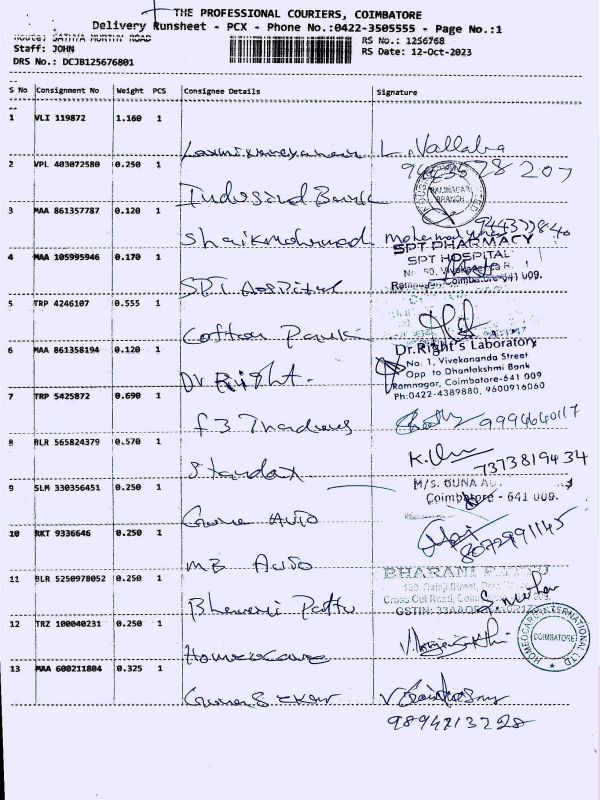 THE PROFESSIONAL COURIERS, COIMBATORE
Delivery Runsheet - PCX - Phone No.:0422-3505555 - Page No.:1
Route: SATHYA MURTHY ROAD
RS No.: 1256768
Staff: JOHN
RS Date: 12-Oct-2023
DRS No.: DCJB125676801
S No Consignment No Weight PCS Consignee Details Signature
1 VLI 119872 1.160 1
L. Vallaba
2 VPL 403072580 0.250 1
Indusind Bank
RAMNAGAR
BRANCH
3 MAA 861357787 0.120 1
Shaikmohmad
4 MAA 105995946 0.170 1
SPT PHARMACY
SPT HOSPITAL
No. 50, Vivekananda R
Ramnagar, Coimbatore-641 009.
SPT Hospital
5 TRP 4246107 0.555 1
Cotton
6 MAA 861358194 0.120 1
Dr.Right's Laboratory
No. 1, Vivekananda Street
Opp to Dhanlakshmi Bank
Ramnagar, Coimbatore-641 009
Ph:0422-4389880, 9600916060
Dr Right.
7 TRP 5425872 0.690 1
F3 9994640117
8 BLR 565824379 0.570 1
K.
7373819434
9 SLM 330356451 0.250 1
M/S. GUNA
Coimbatore - 641 009.
Guna Auto
10 RKT 9336646 0.250 1
8072991145
MB Auto
11 BLR 5250978052 0.250 1
BHARANI PATTU
Cross Cut Road,
GSTIN:
12 TRZ 100040231 0.250 1
HOMEOCARE INTERNATIONAL
COIMBATORE
LTD
Homeocare
13 MAA 600211804 0.325 1
Guna Sekar
9894213228